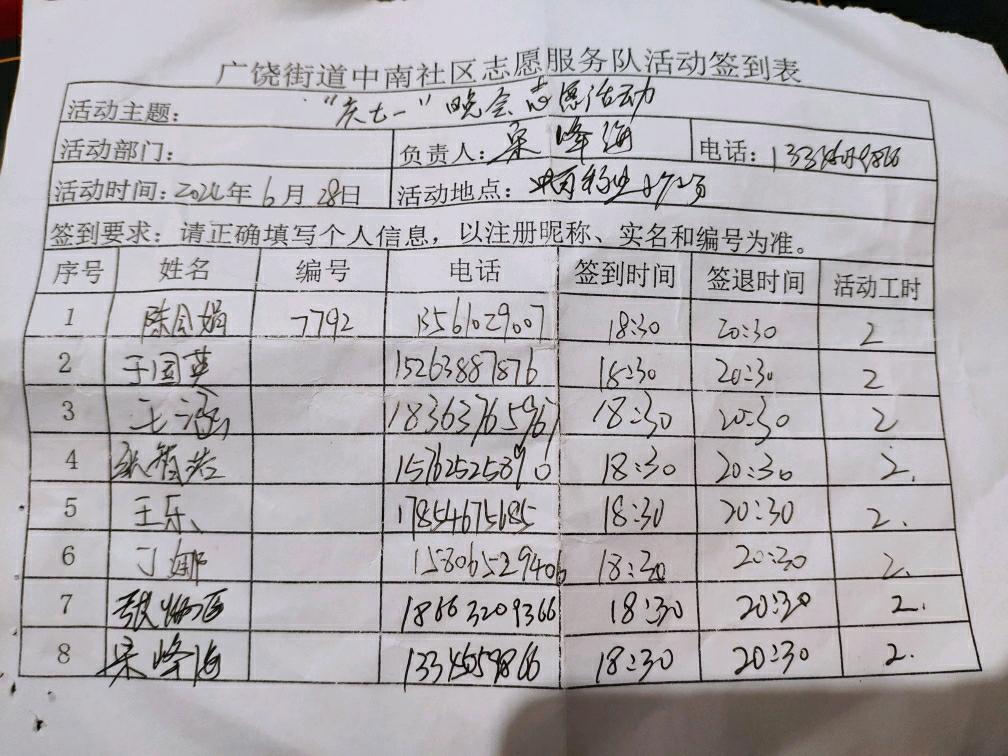 广饶街道中南社区志愿服务队活动签到表
活动主题： “庆七一”晚会志愿活动
活动部门： 负责人：宋峰海 电话：
活动时间：2024年6月28日 活动地点：
签到要求：请正确填写个人信息，以注册昵称、实名和编号为准。
序号 姓名 编号 电话 签到时间 签退时间 活动工时
1 陈令娟 7792 13561029007 18:30 20:30 2
2 于国英 15263887876 18:30 20:30 2
3 王涵 18363765967 18:30 20:30 2
4 张智浩 15762525890 18:30 20:30 2.
5 王乐 17854675685 18:30 20:30 2.
6 丁娜 15806529406 18:30 20:30 2.
7 18663209366 18:30 20:30 2.
8 宋峰海 18:30 20:30 2.